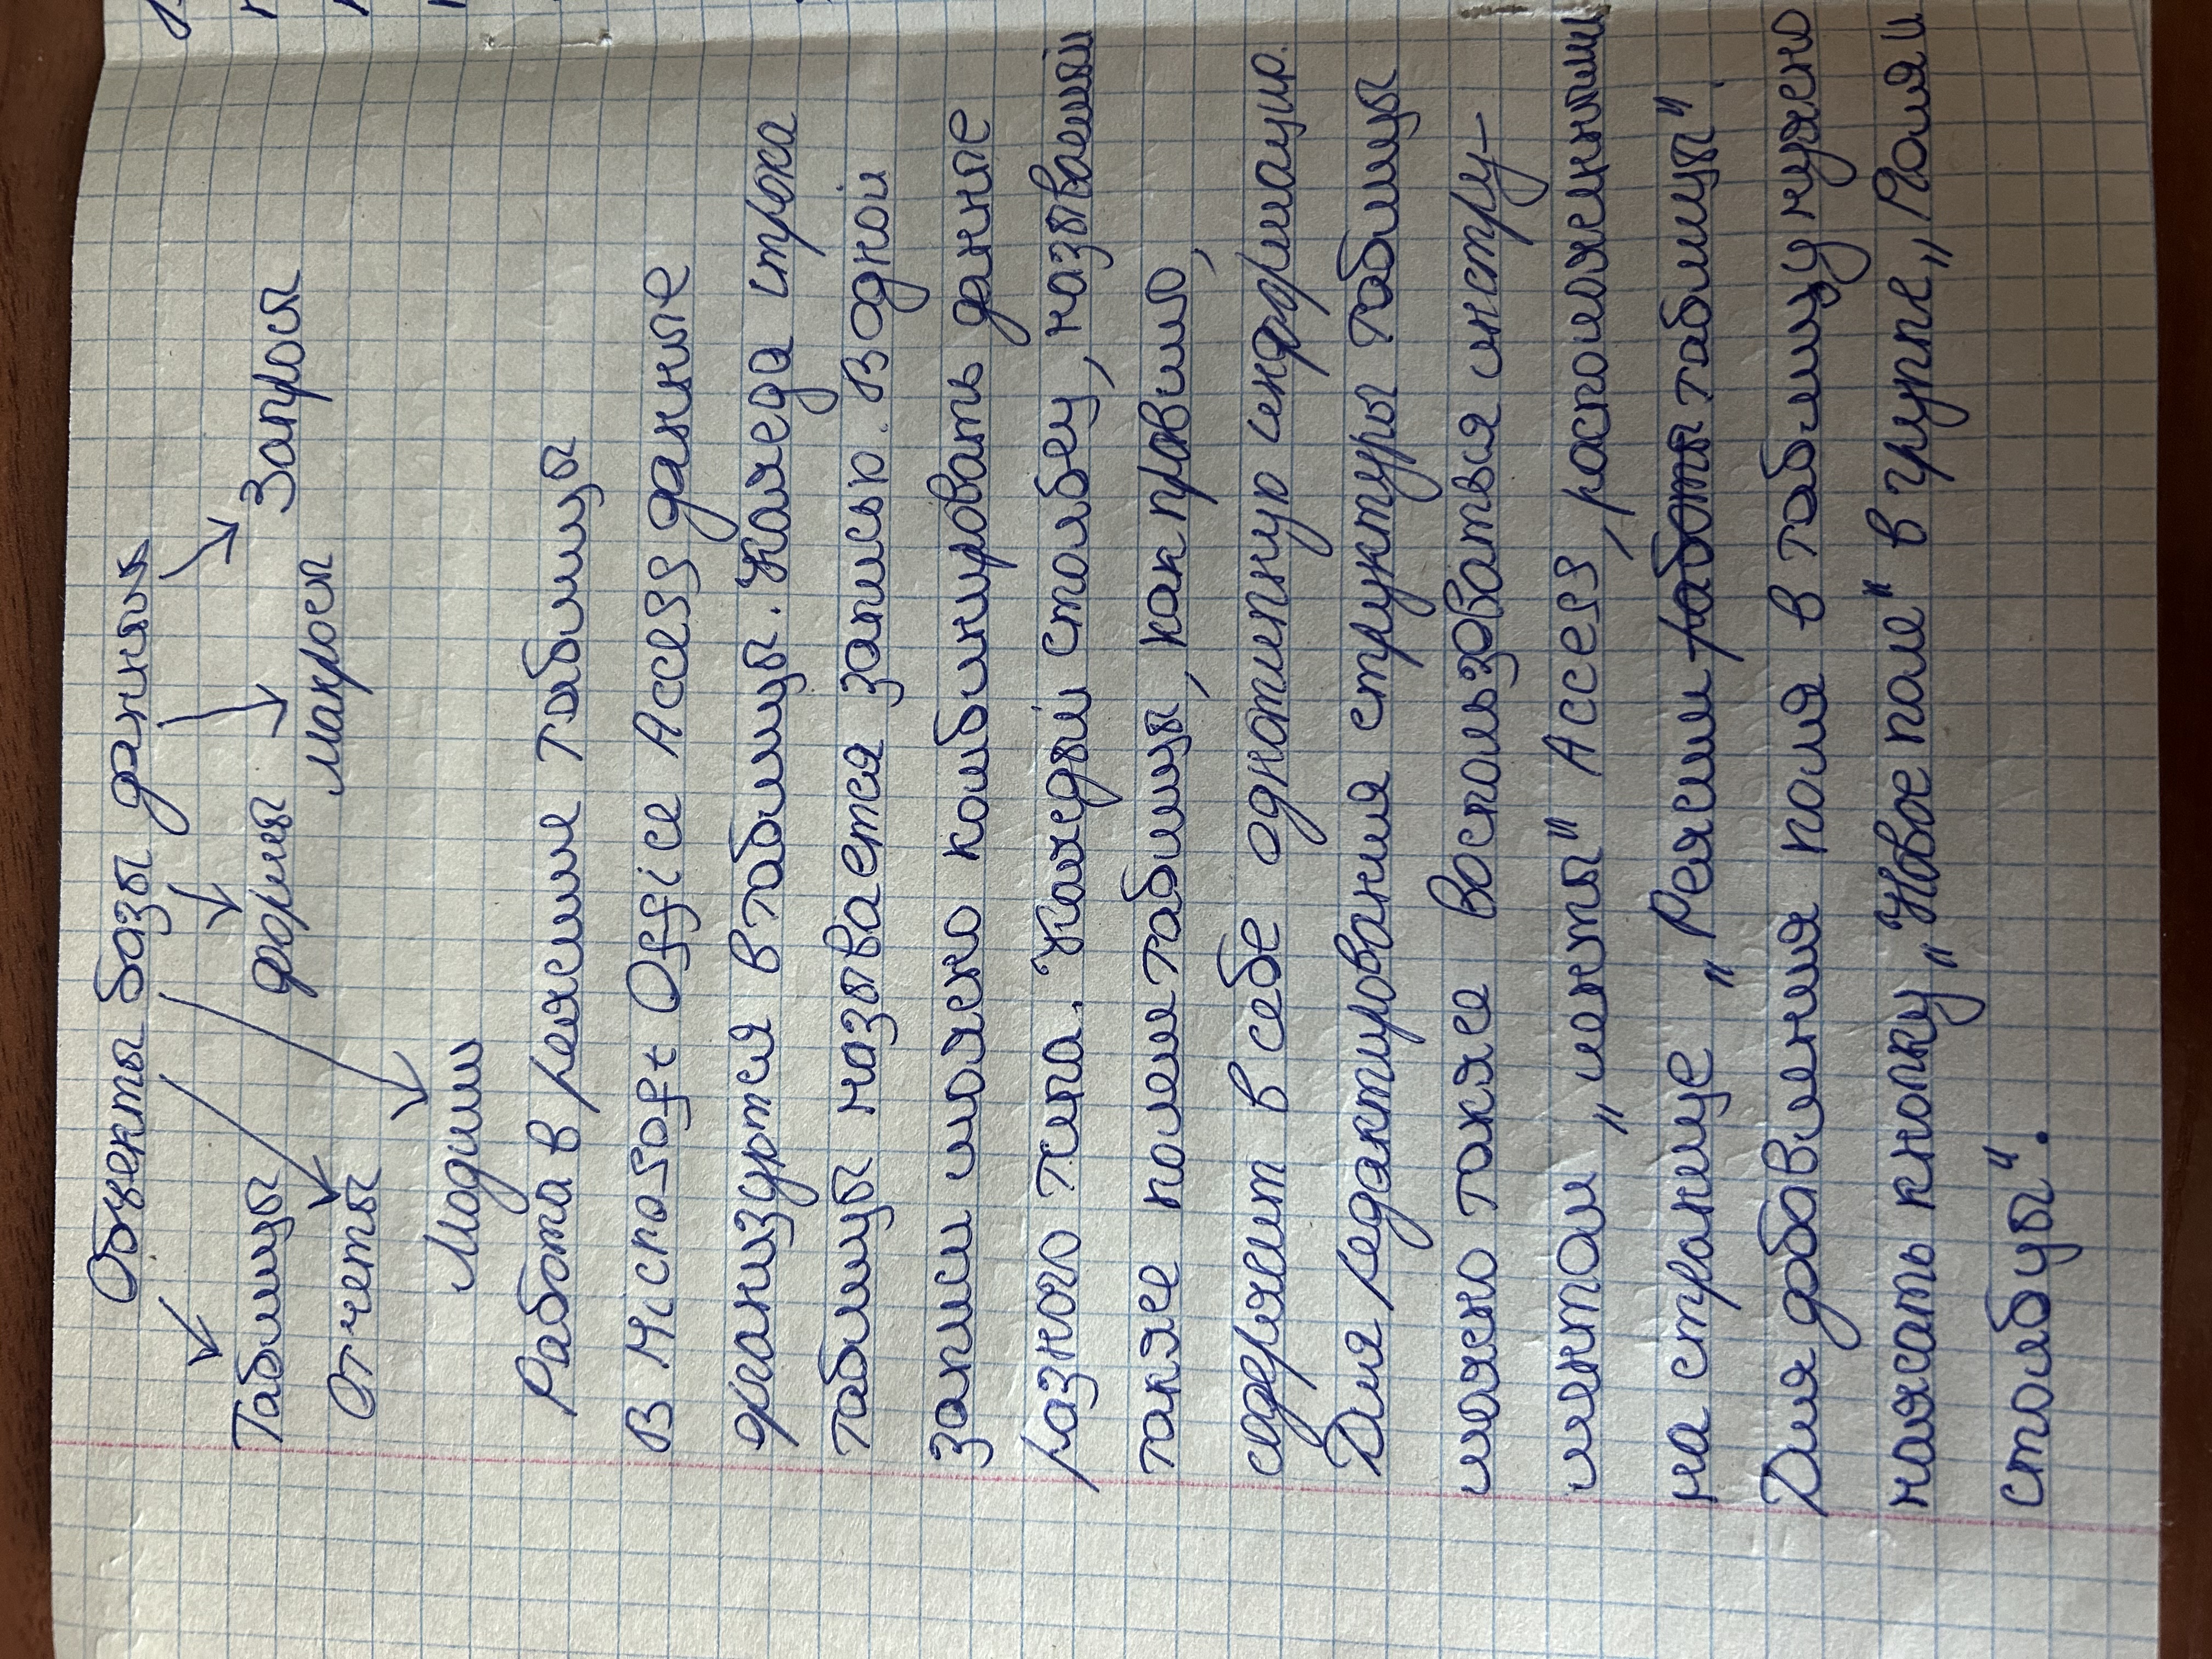 Объекты базы данных
Таблицы формы Запросы
Отчеты макросы
Модули
Работа в режиме таблицы
В Microsoft Office Access данные
организуются в таблицы. Каждая строка
таблицы называется записью. В одной
записи можно комбинировать данные
разного типа. Каждый столбец, называемый
также полем таблицы, как правило,
содержит в себе однотипную информацию.
Для редактирования структуры таблицы
можно также воспользоваться инстру-
ментами „ленты" Access, расположенными
на странице „Режим работы таблицы".
Для добавления поля в таблицу нужно
нажать кнопку „Новое поле" в группе „Поля и
столбцы".